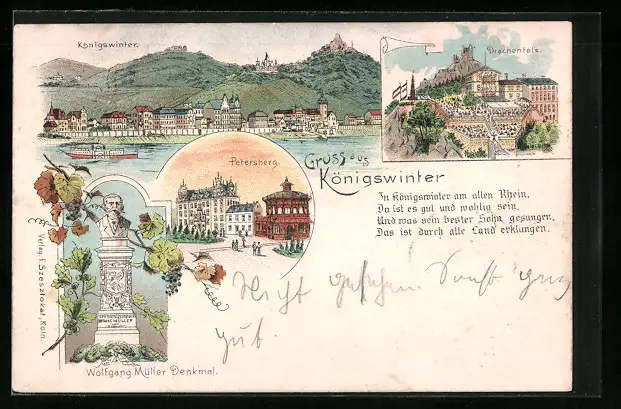 Königswinter.
Drachenfels.
Petersberg.
Gruss aus
Königswinter
In Königswinter am alten Rhein,
Da ist es gut und wohlig sein,
Und was sein bester Sohn gesungen,
Das ist durch alle Land' erklungen.
Nicht gesehen. Sonst ganz
gut.
Wolfgang Müller Denkmal.
Verlag F. Szesztokat, Köln.